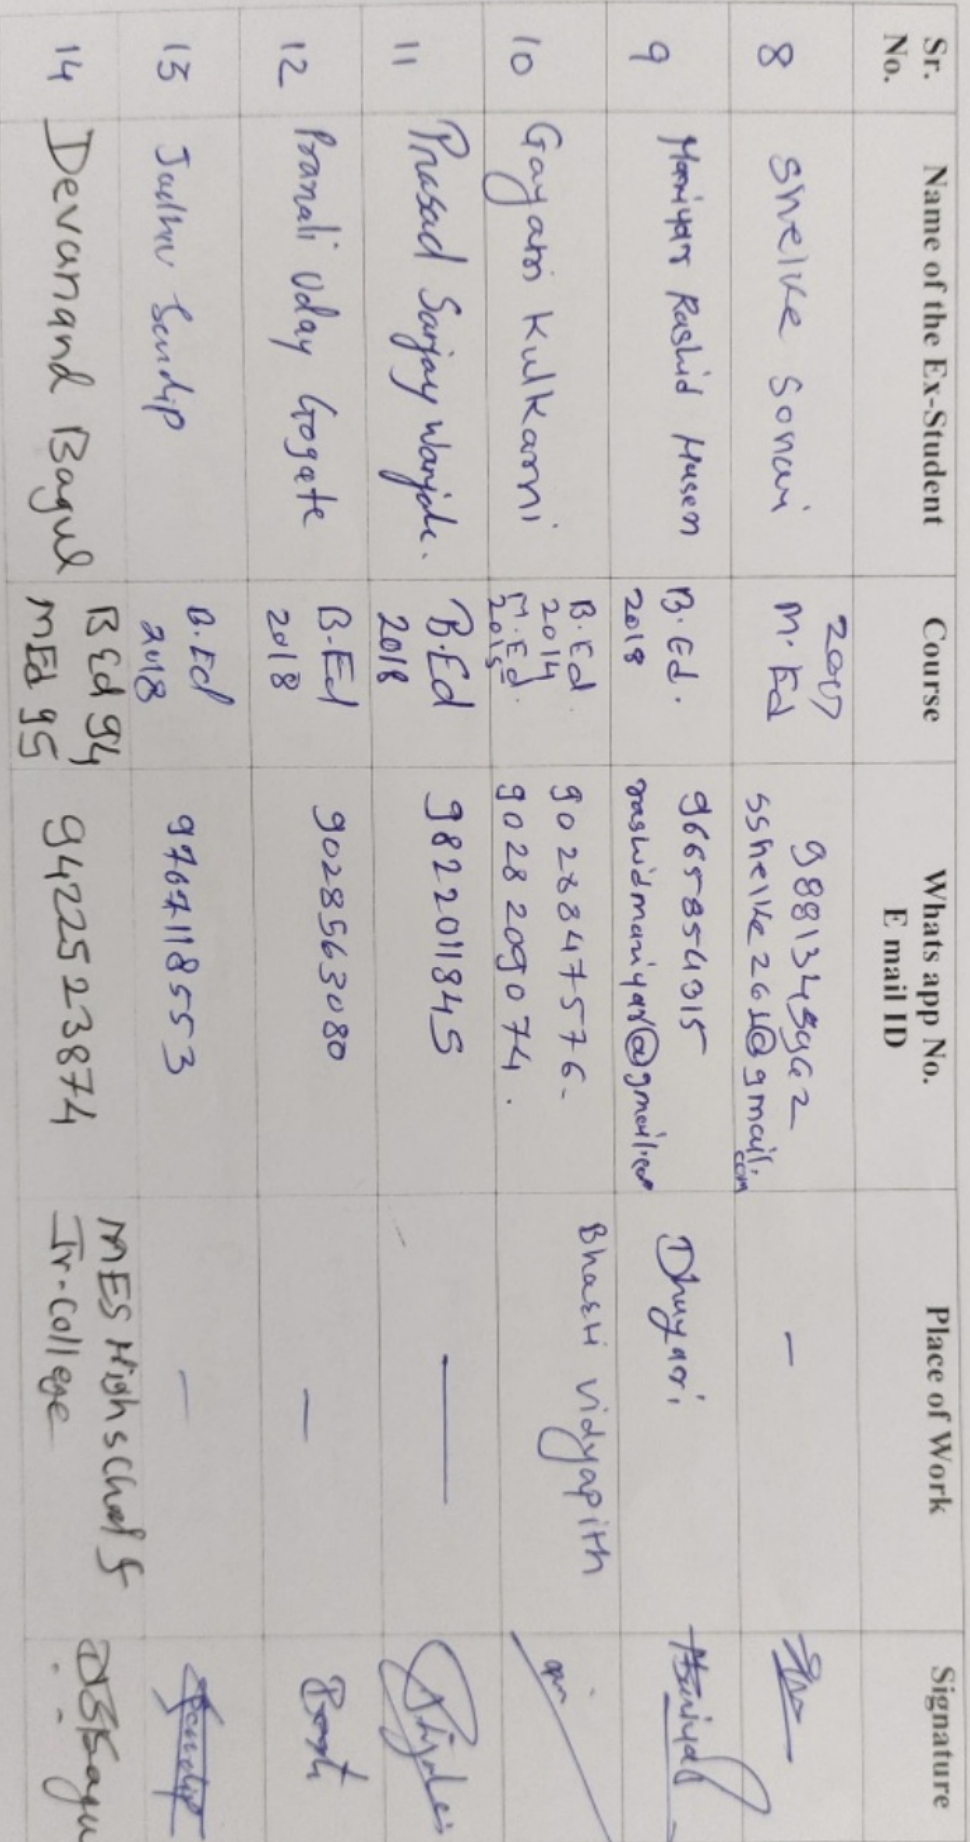 Sr. No. Name of the Ex-Student Course Whats app No. E mail ID Place of Work Signature
8 Shelke Sonavi 2017 M.Ed sshelke261@gmail.com —
9 Maniyar Rashid Husen B.Ed. 2018 9665854315 rashidmaniyar@gmail.com Dhayari Maniyar
10 Gayatri Kulkarni B.Ed. 2014 M.Ed. 2015 9028847576 - 9028209074 . Bharti vidyapith
11 Prasad Sanjay Wanjale. B.Ed 2018 9822011845 —
12 Pranali Uday Gogate B.Ed 2018 9028563080 —
13 Jadhav Sandip B.Ed 2018 9767118553 — Sandip
14 Devanand Bagul B Ed 94 MEd 95 9422523874 MES High school & Jr. College DBBagul